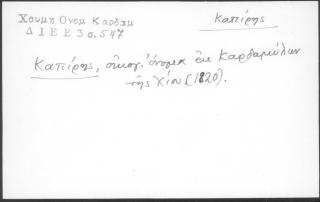 Χουμη Ονομ Καρδαμ
Δ Ι Ε Ε 3 σ. 547
Καπίρης
Καπίρης, οἰκογ. ὄνομα ἐκ Καρδαμύλων
τῆς Χίου (1820).